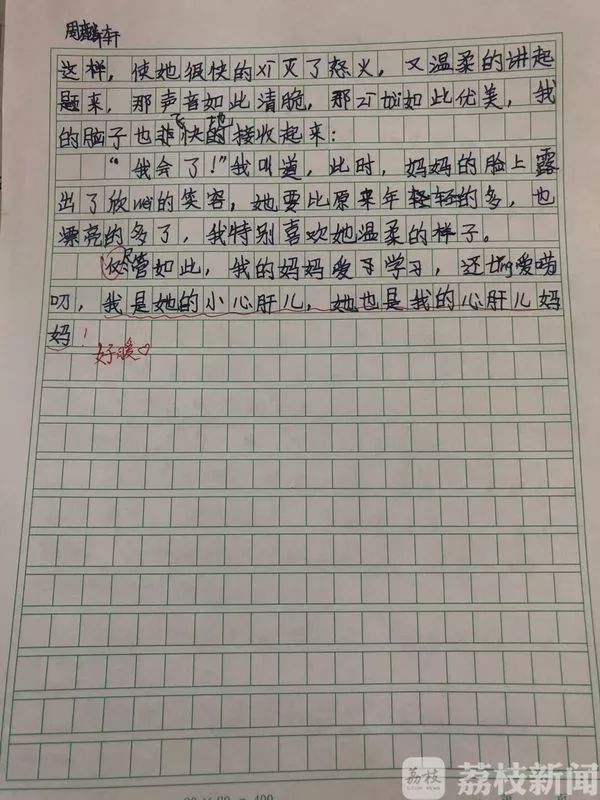 周麟轩
这样，使她很快的xī灭了怒火，又温柔的讲起
题来，那声音如此清脆，那zī tài如此优美，我
的脑子也飞快地接收起来：
“我会了！”我叫道，此时，妈妈的脸上露
出了欣wèi的笑容，她要比原来年轻的多，也
漂亮的多了，我特别喜欢她温柔的样子。
尽管如此，我的妈妈爱学习，还tǐng爱唠
叨，我是她的小心肝儿，她也是我的心肝儿妈
妈！
好暖♡
荔枝
荔枝新闻